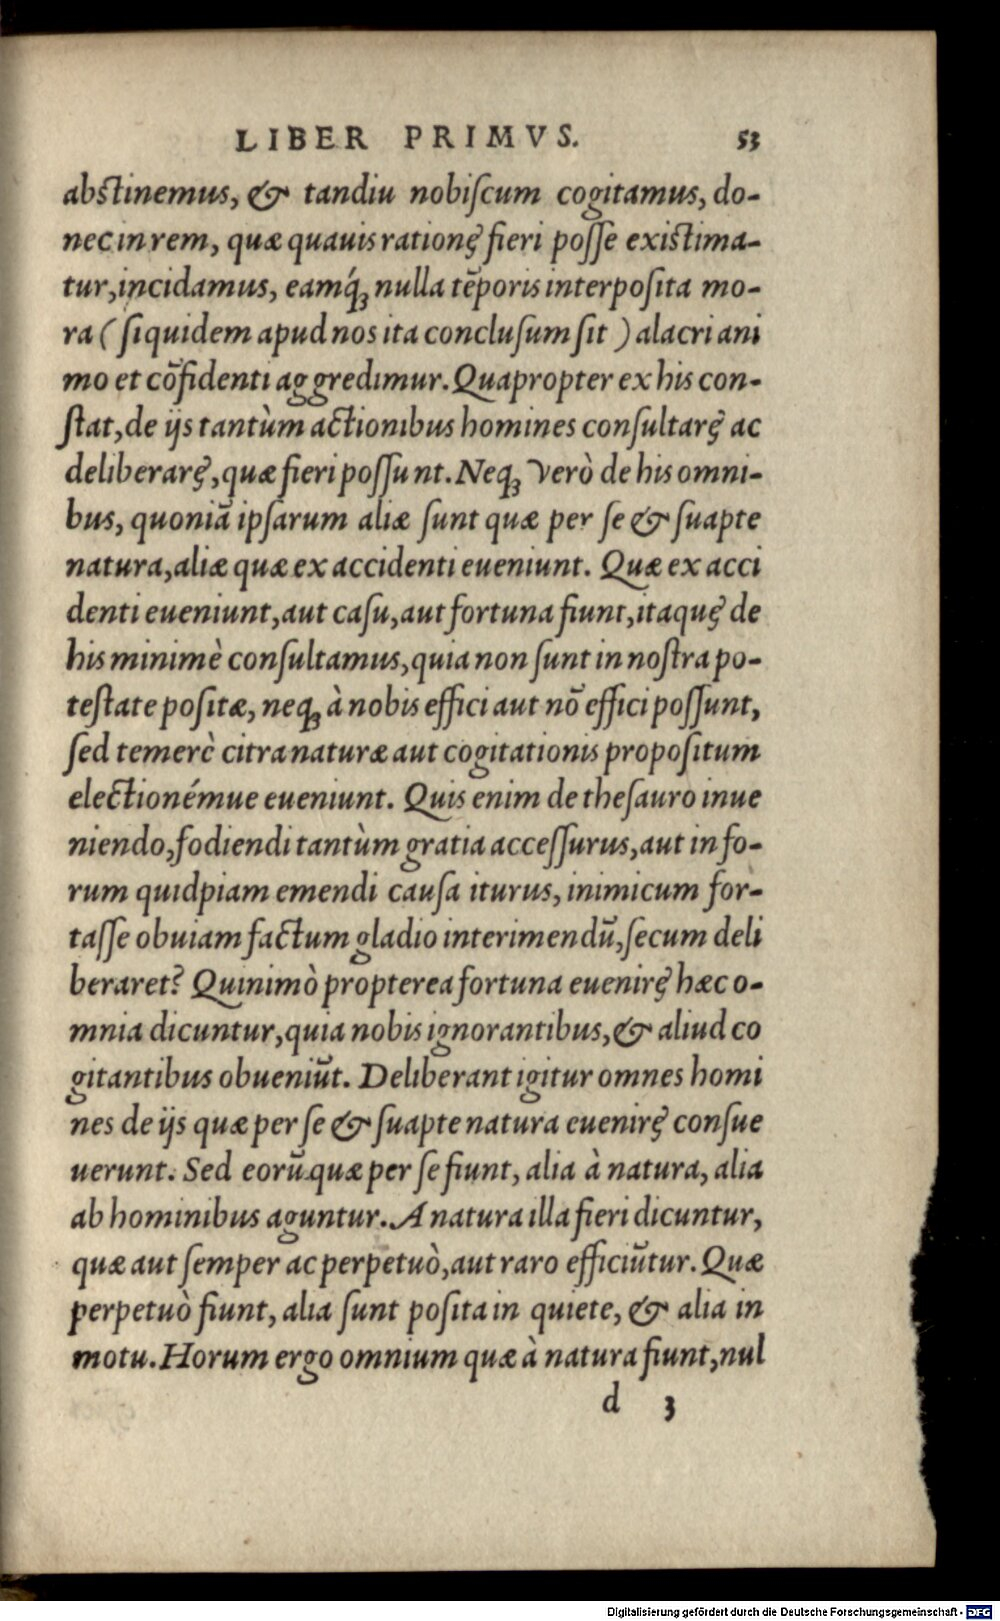 LIBER PRIMVS. 53
abstinemus, & tandiu nobiſcum cogitamus, do-
nec in rem, quæ quauis rationę fieri poſſe existima-
tur, incidamus, eamq́ꝫ nulla tēporis interpoſita mo-
ra ( ſiquidem apud nos ita concluſum ſit ) alacri ani
mo et cōfidenti aggredimur. Quapropter ex his con-
ſtat, de ijs tantùm actionibus homines conſultarę ac
deliberarę, quæ fieri poſſunt. Neqꝫ verò de his omni-
bus, quoniā ipſarum aliæ ſunt quæ per ſe & ſuapte
natura, aliæ quæ ex accidenti eueniunt. Quæ ex acci
denti eueniunt, aut caſu, aut fortuna fiunt, itaquę de
his minimè conſultamus, quia non ſunt in noſtra po-
teſtate poſitæ, neqꝫ à nobis effici aut nō effici poſſunt,
ſed temerè citra naturæ aut cogitationis propoſitum
electionémue eueniunt. Quis enim de theſauro inue
niendo, fodiendi tantùm gratia acceſſurus, aut in fo-
rum quidpiam emendi cauſa iturus, inimicum for-
taſſe obuiam factum gladio interimendū, ſecum deli
beraret? Quinimò propterea fortuna euenirę hæc o-
mnia dicuntur, quia nobis ignorantibus, & aliud co
gitantibus obueniūt. Deliberant igitur omnes homi
nes de ijs quæ per ſe & ſuapte natura euenirę conſue
uerunt. Sed eorū quæ per ſe fiunt, alia à natura, alia
ab hominibus aguntur. A natura illa fieri dicuntur,
quæ aut ſemper ac perpetuò, aut raro efficiūtur. Quæ
perpetuò fiunt, alia ſunt poſita in quiete, & alia in
motu. Horum ergo omnium quæ à natura fiunt, nul
d 3
Digitalisierung gefördert durch die Deutsche Forschungsgemeinschaft - DFG